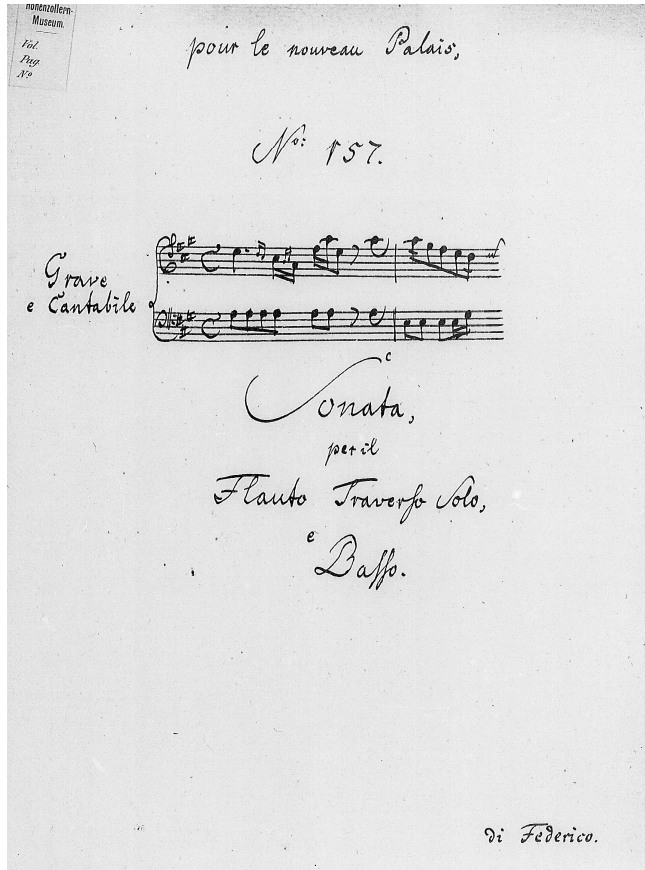 Hohenzollern-
Museum.
Vol.
Pag.
No
pour le nouveau Palais,
No: 157.
Grave
e Cantabile
Sonata,
per il
Flauto Traverso Solo,
e
Basso.
di Federico.